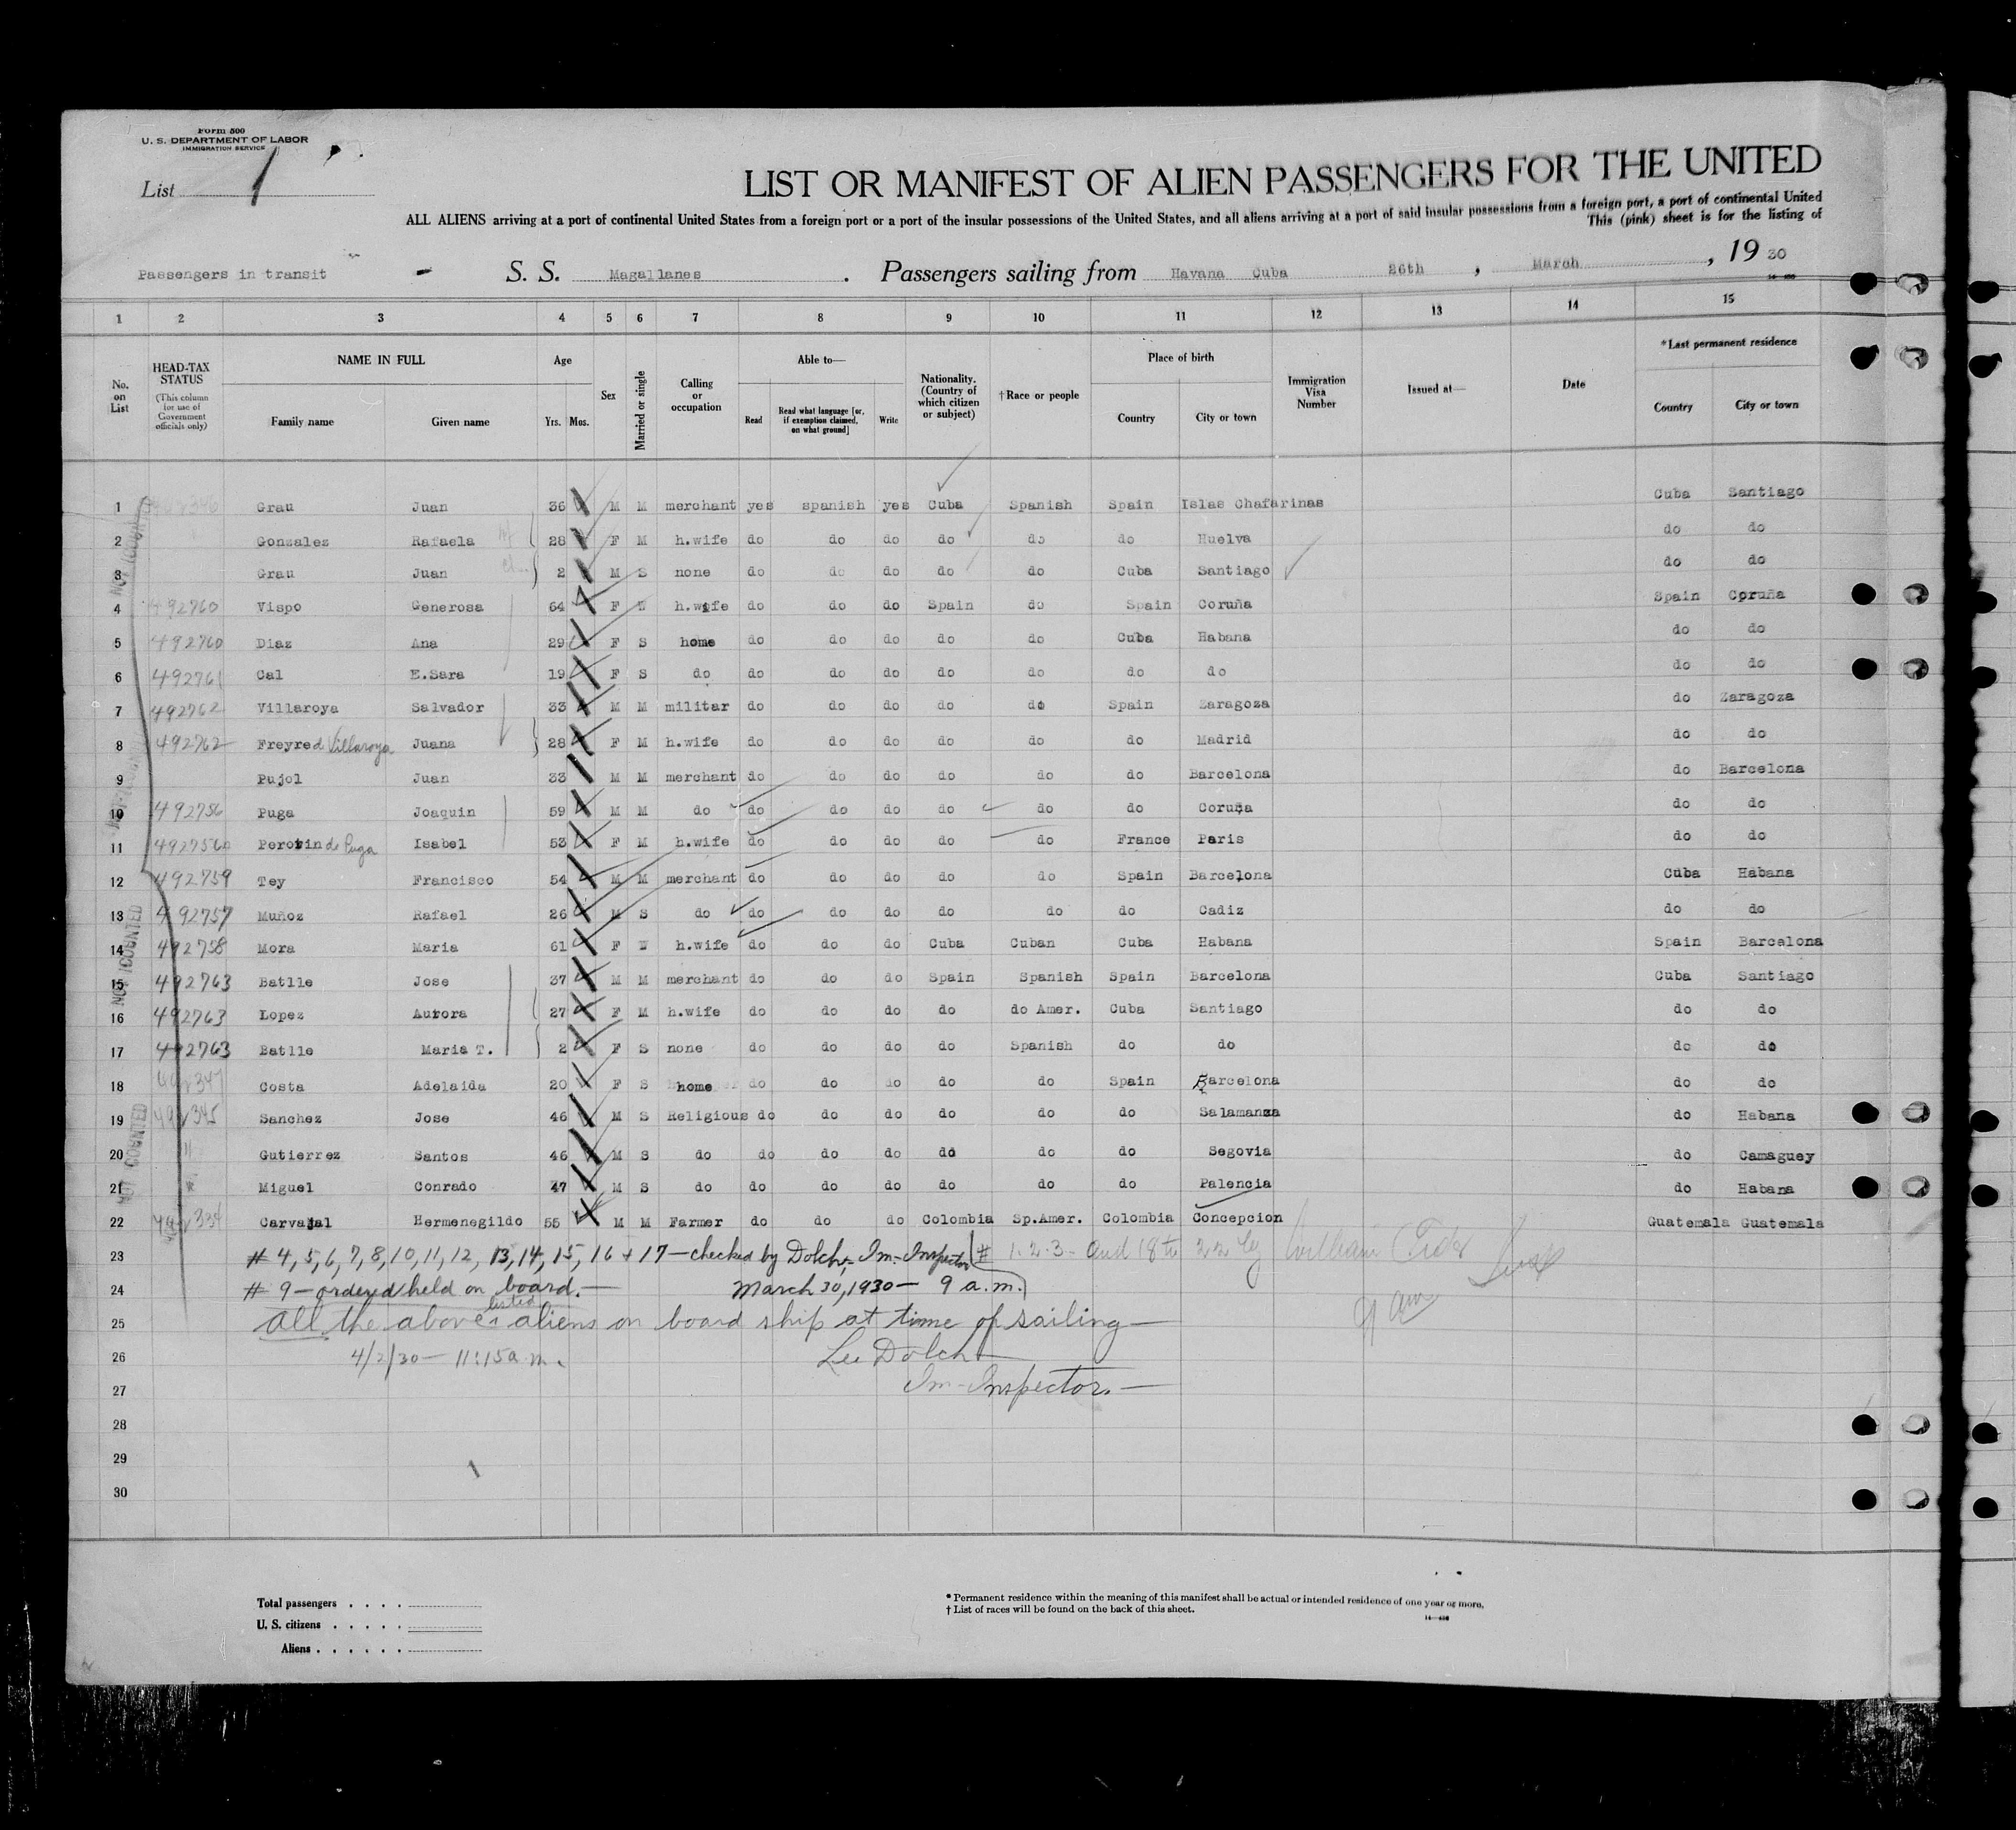 Form 500
U. S. DEPARTMENT OF LABOR
IMMIGRATION SERVICE
List 1
LIST OR MANIFEST OF ALIEN PASSENGERS FOR THE UNITED
ALL ALIENS arriving at a port of continental United States from a foreign port or a port of the insular possessions of the United States, and all aliens arriving at a port of said insular possessions from a foreign port, a port of continental United
This (pink) sheet is for the listing of
Passengers in transit - S. S. Magallanes . Passengers sailing from Havana Cuba 26th , March , 19 30
1 2 3 4 5 6 7 8 9 10 11 12 13 14 15
No. on List
HEAD-TAX STATUS (This column for use of Government officials only)
NAME IN FULL
Family name Given name
Age
Yrs. Mos.
Sex
Married or single
Calling or occupation
Able to—
Read
Read what language [or, if exemption claimed, on what ground]
Write
Nationality. (Country of which citizen or subject)
†Race or people
Place of birth
Country City or town
Immigration Visa Number
Issued at—
Date
*Last permanent residence
Country City or town
1 Grau Juan 36 M M merchant yes spanish yes Cuba Spanish Spain Islas Chafarinas Cuba Santiago
2 Gonzalez Rafaela 28 F M h.wife do do do do do do Huelva do do
3 Grau Juan 2 M S none do do do do do Cuba Santiago do do
4 492760 Vispo Generosa 64 F W h.wife do do do Spain do Spain Coruña Spain Coruña
5 492760 Diaz Ana 29 F S home do do do do do Cuba Habana do do
6 492761 Cal E.Sara 19 F S do do do do do do do do do do
7 492762 Villaroya Salvador 33 M M militar do do do do do Spain Zaragoza do Zaragoza
8 492762 Freyre d Villaroya Juana 28 F M h.wife do do do do do do Madrid do do
9 Pujol Juan 33 M M merchant do do do do do do Barcelona do Barcelona
10 492756 Puga Joaquin 59 M M do do do do do do do Coruña do do
11 492756 Perotin de Puga Isabel 53 F M h.wife do do do do do France Paris do do
12 492759 Tey Francisco 54 M M merchant do do do do do Spain Barcelona Cuba Habana
13 492757 Muñoz Rafael 26 M S do do do do do do do Cadiz do do
14 492758 Mora Maria 61 F W h.wife do do do Cuba Cuban Cuba Habana Spain Barcelona
15 492763 Batlle Jose 37 M M merchant do do do Spain Spanish Spain Barcelona Cuba Santiago
16 492763 Lopez Aurora 27 F M h.wife do do do do do Amer. Cuba Santiago do do
17 492763 Batlle Maria T. 2 F S none do do do do Spanish do do do do
18 Costa Adelaida 20 F S home do do do do do Spain Barcelona do do
19 Sanchez Jose 46 M S Religious do do do do do do Salamanza do Habana
20 " Gutierrez Santos 46 M S do do do do do do do Segovia do Camaguey
21 " Miguel Conrado 47 M S do do do do do do do Palencia do Habana
22 Carvajal Hermenegildo 55 M M Farmer do do do Colombia Sp.Amer. Colombia Concepcion Guatemala Guatemala
NOT COUNTED
NOT COUNTED
NOT COUNTED
23 # 4, 5, 6, 7, 8, 10, 11, 12, 13, 14, 15, 16 + 17 — checked by Dolch, Im-Inspector # 1-2-3- and 18 to 22 by William
24 # 9 — ordered held on board. — March 30, 1930 — 9 a.m. 9 am
25 all the above listed aliens on board ship at time of sailing —
26 4/2/30 — 11:15 a.m. Lee Dolch
27 Im-Inspector. —
28
29
30
Total passengers . . . .
U. S. citizens . . . . .
Aliens . . . . . .
* Permanent residence within the meaning of this manifest shall be actual or intended residence of one year or more.
† List of races will be found on the back of this sheet.